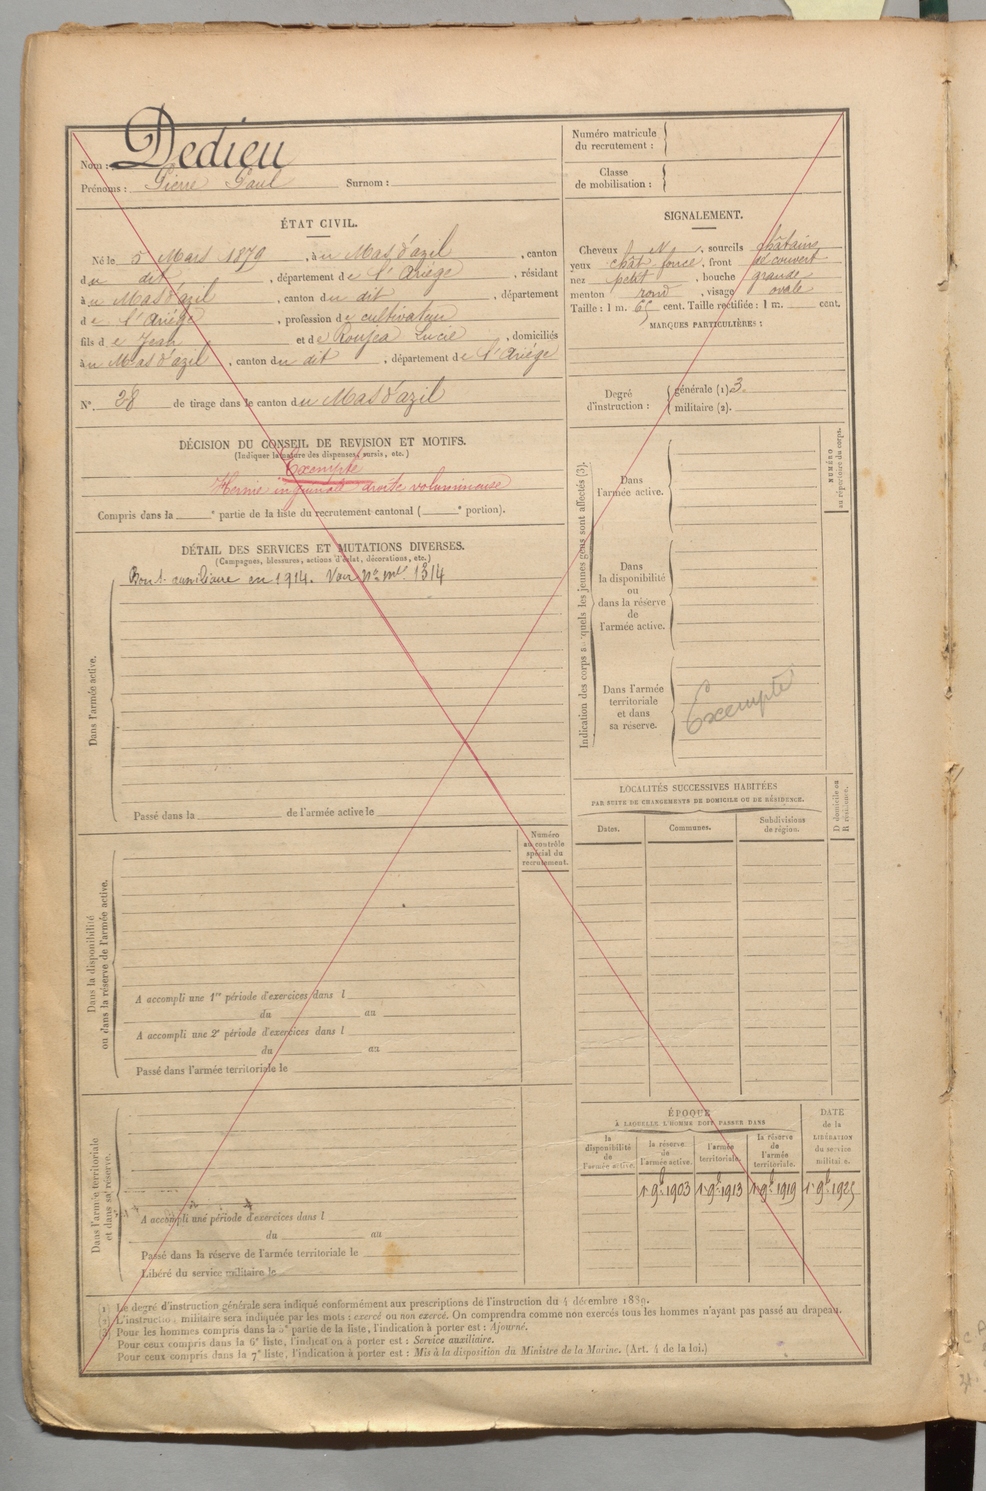 Nom : Dedieu
Prénoms : Pierre Paul Surnom :
Numéro matricule du recrutement :
Classe de mobilisation :
ÉTAT CIVIL.
Né le 5 Mars 1879, à u Mas d'azil, canton
du dit, département de l'Ariège, résidant
à u Mas d'azil, canton du dit, département
de l'Ariège, profession de cultivateur
fils de Jean et de Roujea Lucie, domiciliés
à u Mas d'azil, canton du dit, département de l'Ariège
N° 28 de tirage dans le canton du Mas d'azil
SIGNALEMENT.
Cheveux, sourcils châtains
yeux chât foncé, front découvert
nez petit, bouche grande
menton rond, visage ovale
Taille : 1 m. 65 cent. Taille rectifiée : 1 m. cent.
MARQUES PARTICULIÈRES :
Degré d'instruction : générale (1) 3.
militaire (2).
DÉCISION DU CONSEIL DE REVISION ET MOTIFS.
(Indiquer la nature des dispenses, sursis, etc.)
Exempté
Hernie inguinale droite volumineuse
Compris dans la e partie de la liste du recrutement cantonal ( e portion).
DÉTAIL DES SERVICES ET MUTATIONS DIVERSES.
(Campagnes, blessures, actions d'éclat, décorations, etc.)
Bon s. auxiliaire en 1914. Voir no mle 1314
Dans l'armée active.
Passé dans la de l'armée active le
Numéro au contrôle spécial du recrutement.
Dans la disponibilité ou dans la réserve de l'armée active.
A accompli une 1re période d'exercices dans l
du au
A accompli une 2e période d'exercices dans l
du au
Passé dans l'armée territoriale le
Dans l'armée territoriale et dans sa réserve.
A accompli une période d'exercices dans l
du au
Passé dans la réserve de l'armée territoriale le
Libéré du service militaire le
Indication des corps auxquels les jeunes gens sont affectés (3).
NUMÉRO au répertoire du corps.
Dans l'armée active.
Dans la disponibilité ou dans la réserve de l'armée active.
Dans l'armée territoriale et dans sa réserve.
Exempté
LOCALITÉS SUCCESSIVES HABITÉES
PAR SUITE DE CHANGEMENTS DE DOMICILE OU DE RÉSIDENCE.
Dates. Communes. Subdivisions de région. D domicile ou R résidence.
ÉPOQUE
À LAQUELLE L'HOMME DOIT PASSER DANS
DATE de la LIBÉRATION du service militaire.
la disponibilité de l'armée active. la réserve de l'armée active. l'armée territoriale. la réserve de l'armée territoriale.
1r 9bre 1903 1r 9bre 1913 1r 9bre 1919 1r 9bre 1925
(1) Le degré d'instruction générale sera indiqué conformément aux prescriptions de l'instruction du 4 décembre 1889.
(2) L'instruction militaire sera indiquée par les mots : exercé ou non exercé. On comprendra comme non exercés tous les hommes n'ayant pas passé au drapeau.
(3) Pour les hommes compris dans la 5e partie de la liste, l'indication à porter est : Ajourné.
Pour ceux compris dans la 6e liste, l'indication à porter est : Service auxiliaire.
Pour ceux compris dans la 7e liste, l'indication à porter est : Mis à la disposition du Ministre de la Marine. (Art. 4 de la loi.)